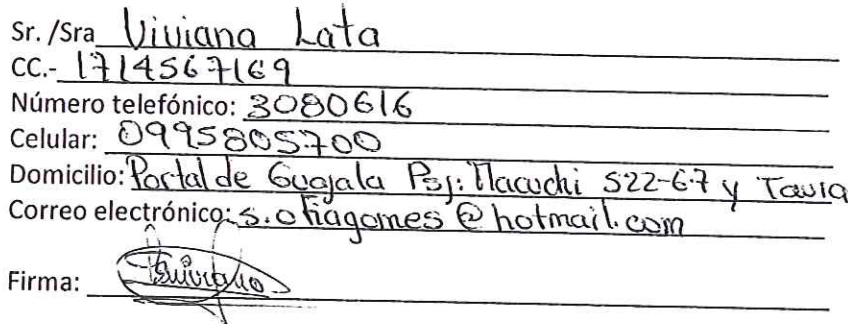 Sr. /Sra Viviana Lata
CC.- 1714567169
Número telefónico: 3080616
Celular: 0995805700
Domicilio: Portal de Guajala Psj: Macuchi S22-67 y Tavia
Correo electrónico: s.ofiagomes@hotmail.com
Firma: